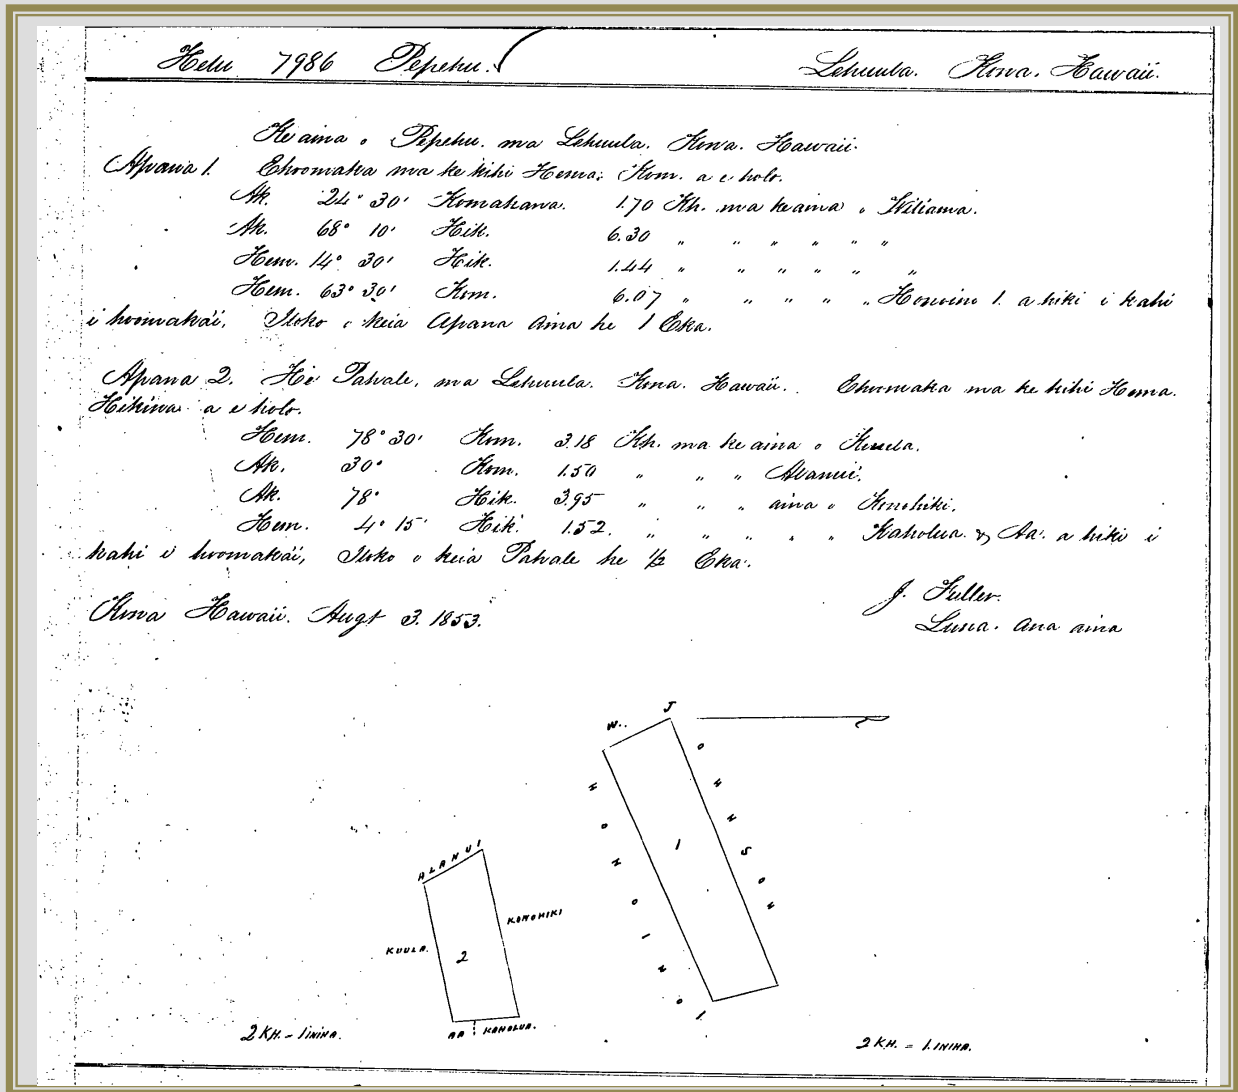 Helu 7986 Pepehu. Lehuula. Kona. Hawaii.
Ke aina o Pepehu. ma Lehuula. Kona. Hawaii.
Apana 1. Ehoomaka ma ke kihi Hema; Kom. a e holo.
Ak. 24° 30' Komohana. 1.70 Kh. ma ke aina o Wiliama.
Ak. 68° 10' Hik. 6.30 " " " " " "
Hem. 14° 30' Hik. 1.44 " " " " " "
Hem. 63° 30' Kom. 6.07 " " " " " Honoino 1. a hiki i kahi
i hoomakai. Iloko o keia Apana Aina he 1 Eka.
Apana 2. He Pahale, ma Lehuula. Kona. Hawaii. Ehoomaka ma ke kihi Hema.
Hikina a e holo.
Hem. 78° 30' Kom. 3.18 Kh. ma ke aina o Kuula.
Ak. 30° Kom. 1.50 " " " Alanui.
Ak. 78° Hik. 3.95 " " " aina o Konohiki.
Hem. 4° 15' Hik. 1.52. " " " " " Kaholua. & Aa. a hiki i
kahi i hoomakai, Iloko o keia Pahale he 1/2 Eka.
Kona Hawaii. Augt 3. 1853.
J. Fuller.
Luna. Ana aina
W. JOHNSON
HONOINO 1
1
ALANUI
KONOHIKI
KUULA.
2
AA KAHOLUA.
2 KH. = 1 INIHA.
2 KH. = 1. INIHA.